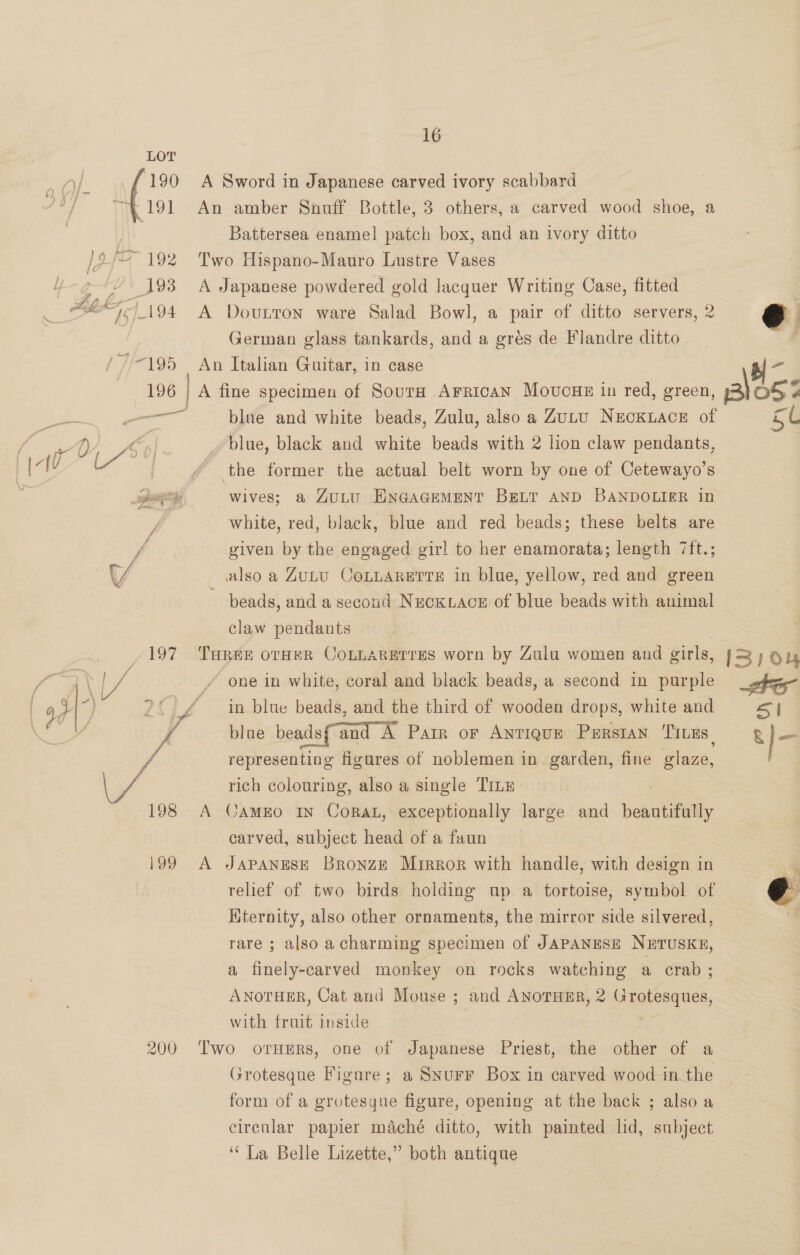 16
LOT
190 A Sword in Japanese carved ivory scabbard
191 An amber Snuff Bottle, 3 others, a carved wood shoe, a
Battersea enamel patch box, and an ivory ditto
192 Two Hispano-Mauro Lustre Vases
193 A Japanese powdered gold lacquer Writing Case, fitted
194 A DOULTON ware Salad Bowl, a pair of ditto servers, 2
German glass tankards, and a grès de Flandre ditto
195 An Italian Guitar, in case
196 A fine specimen of SOUTH AFRICAN MOUCHE in red, green,
blue and white beads, Zulu, also a ZULU NECKLACE of
blue, black and white beads with 2 lion claw pendants,
the former the actual belt worn by one of Cetewayo's
wives; a ZULU ENGAGEMENT BELT AND BANDOLIER in
white, red, black, blue and red beads; these belts are
given by the engaged girl to her enamorata; length 7ft.;
also a ZULU COLLARETTE in blue, yellow, red and green
beads, and a second NECKLACE of blue beads with animal
claw pendants
197 THREE OTHER COLLARETTES worn by Zulu women and girls,
one in white, coral and black beads, a second in purple
in blue beads, and the third of wooden drops, white and
blue beads and A PAIR OF ANTIQUE PERSIAN TILES
representing figures of noblemen in garden, fine glaze,
rich colouring, also a single TILE
198 A CAMEO IN CORAL, exceptionally large and beautifully
carved, subject head of a faun
199 A JAPANESE BRONZE MIRROR with handle, with design in
relief of two birds holding up a tortoise, symbol of
Eternity, also other ornaments, the mirror side silvered,
rare ; also a charming specimen of JAPANESE NETUSKE,
a finely-carved monkey on rocks watching a crab ;
ANOTHER, Cat and Mouse ; and ANOTHER, 2 Grotesques,
with fruit inside
200 Two OTHERS, one of Japanese Priest, the other of a
Grotesque Figure ; a SNUFF Box in carved wood in the
form of a grotesque figure, opening at the back ; also a
circular papier mâché ditto, with painted lid, subject
“La Belle Lizette,” both antique